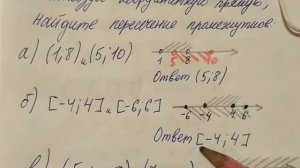 координатную прямую,
Найдите пересечение промежутков
а) (1,8) и (5;10)
1 5 8 10
Ответ (5,8)
б) [-4;4] и [-6;6]
-6 -4 4 6
Ответ [-4;4]
в)